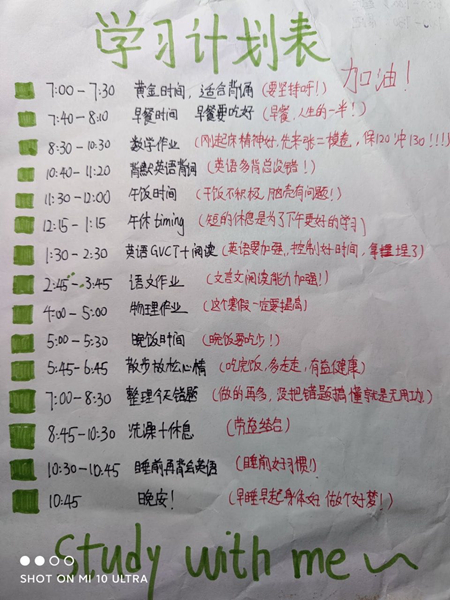 学习计划表
加油!
7:00-7:30 黄金时间,适合背诵(要坚持呀!)
7:40-8:10 早餐时间 早餐要吃好(早餐,人生的一半!)
8:30-10:30 数学作业(刚起床精神好,先来张二模卷,保120冲130!!!)
10:40-11:20 背默英语背词(英语多背总没错!)
11:30-12:00 午饭时间(午饭不积极,脑壳有问题!)
12:15-1:15 午休timing(短的休息是为了下午更好的学习)
1:30-2:30 英语GVCT+阅读(英语要加强,控制好时间,)
2:45-3:45 语文作业(文言文阅读能力加强!)
4:00-5:00 物理作业(这个寒假一定要提高)
5:00-5:30 晚饭时间(晚饭要吃少!)
5:45-6:45 散步放松心情(吃完饭,多走走,有益健康)
7:00-8:30 整理今天错题(做的再多,没把错题搞懂就是无用功!)
8:45-10:30 洗澡+休息(劳益结合)
10:30-10:45 睡前再背会英语(睡前好习惯!)
10:45 晚安!(早睡早起身体好 做个好梦!)
Study with me
SHOT ON MI 10 ULTRA